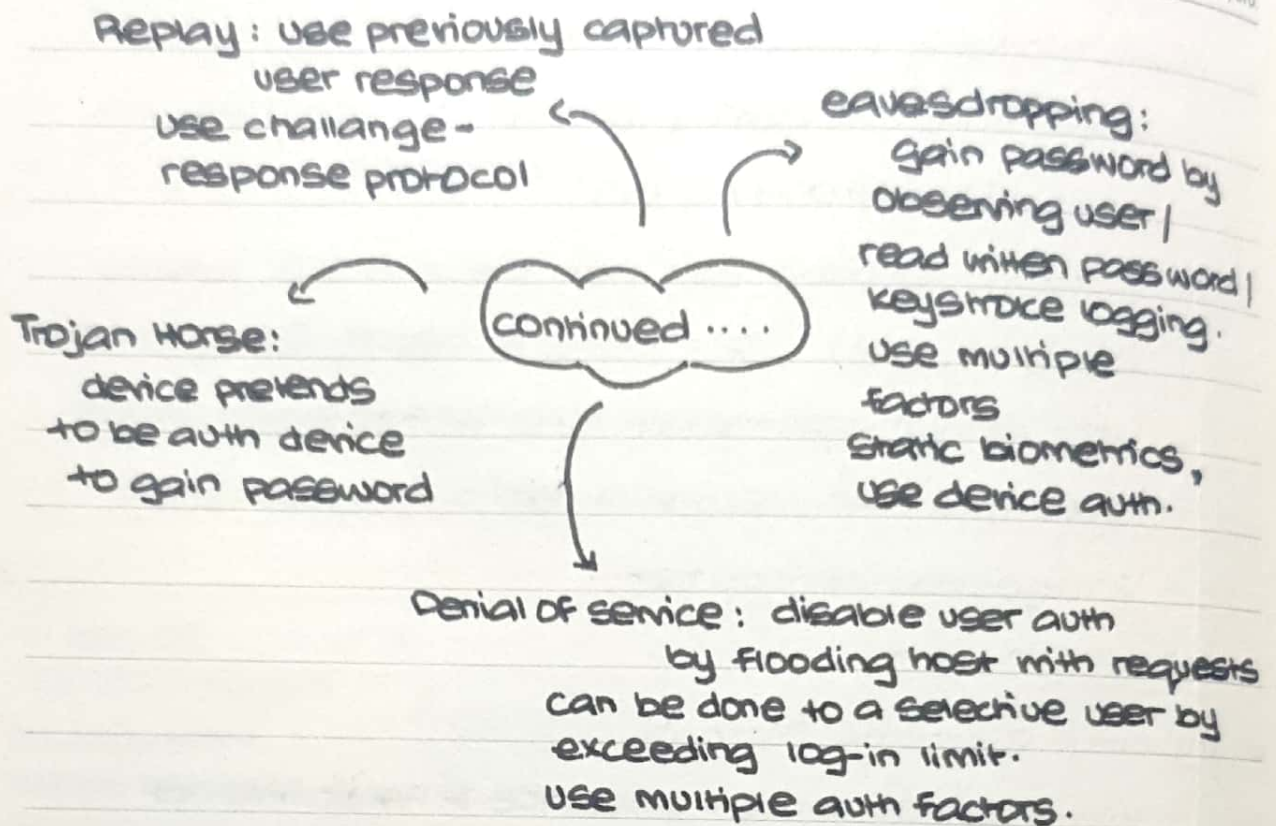 Replay: use previously captured
user response
use challange-
response protocol
eavesdropping:
gain password by
observing user/
read written password/
keystroke logging.
use multiple
factors
static biometrics,
use device auth.
continued ....
Trojan Horse:
device pretends
to be auth device
to gain password
Denial of service: disable user auth
by flooding host with requests
can be done to a selective user by
exceeding log-in limit.
use multiple auth factors.